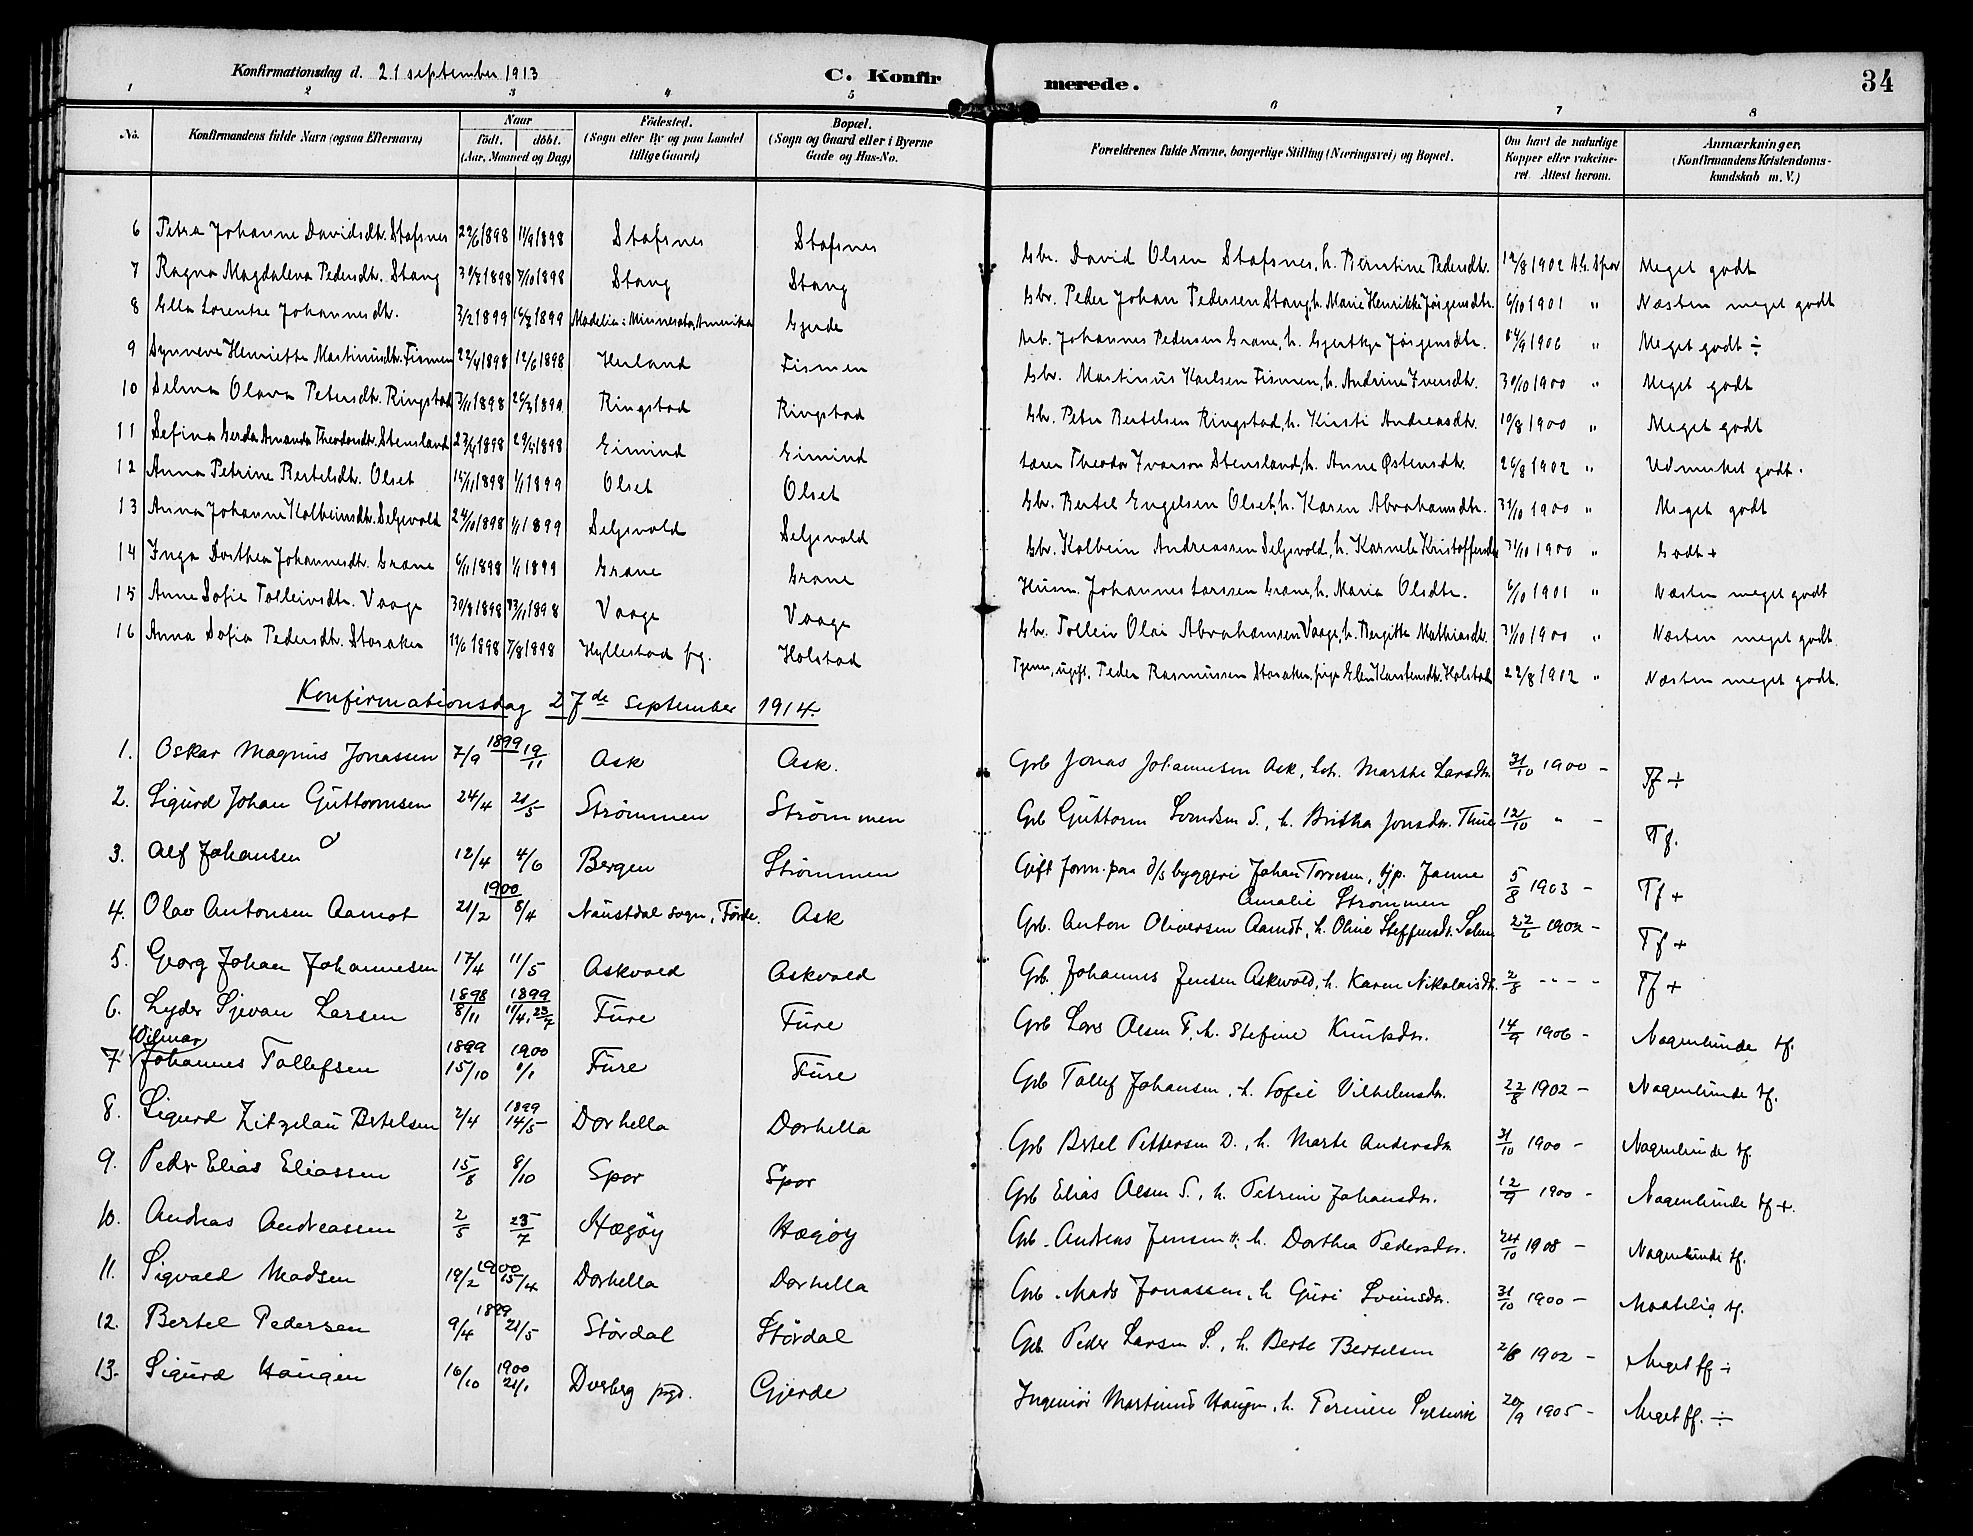 Konfirmationsdag d. 21 september 1913
C. Konfir merede.
34
1 2 3 4 5 6 7 8
No. Konfirmandens fulde Navn (ogsaa Efternavn) Naar födt. döbt. (Aar, Maaned og Dag) Födested. (Sogn eller By og paa Landet tillige Gaard) Bopæl. (Sogn og Gaard eller i Byerne Gade og Hus-No. Forældrenes fulde Navne, borgerlige Stilling (Næringsvei) og Bopæl. Om havt de naturlige Kopper eller vakcineret. Attest herom. Anmærkninger. (Konfirmandens Kristendomskundskab m. V.)
6 Petra Johanne Davidsdtr. Stafsnes 22/6 1898 11/9 1898 Stafsnes Stafsnes Gbr. David Olsen Stafsnes, h. Berntine Pedersdtr. 19/8 1902 Meget godt
7 Ragna Magdalena Pedersdtr. Stang 1898 1898 Stang Stang Gbr. Peder Johan Pedersen Stang, h. Marie Henrikke Jørgensdtr. 6/10 1901 " Næsten meget godt
8 Ella Lorentse Johannesdtr. 3/2 1899 1899 Madelia: Minnesota, Amerika Gjerde Arb. Johannes Pedersen Grane, h. Jørgensdtr. 1906 " Meget godt ÷
9 Synneve Henriette Martinusdtr. Fismen 22/4 1898 12/6 1898 Henland Fismen Gbr. Martinus Karlsen Fismen, h. Andrine Iversdtr. 30/10 1900 " Meget godt
10 Selma Olava Petersdtr. Ringstad 3/11 1898 1899 Ringstad Ringstad Gbr. Peter Bertelsen Ringstad, h. Kirsti Andreasdtr. 10/8 1900 " Meget godt
11 Sefina Gerda Amanda Theodorsdtr. Stensland 23/4 1898 29/5 1898 Eimind Eimind Lærer Theodor Iversen Stensland, h. Anne Østensdtr. 26/8 1902 " Udmerket godt.
12 Anna Petrine Bertelsdtr. Olset 15/11 1898 1/1 1899 Olset Olset Gbr. Bertel Engelsen Olset, h. Karen Abrahamsdtr. 31/10 1900 " Meget godt
13 Anna Johanne Kolbeinsdtr. Seljevold 24/10 1898 1/1 1899 Seljevold Seljevold Gbr. Kolbein Andreassen Seljevold, h. Karnele Kristoffersdtr 31/10 1900 " Godt +
14 Inga Dorthea Johannesdtr. Grane 6/11 1898 1/1 1899 Grane Grane Husm. Johannes Larssen Grane, h. Maria Olsdtr. 6/10 1901 " Næsten meget godt
15 Anne Sofie Tolleivsdtr. Vaage 30/8 1898 1898 Vaage Vaage Gbr. Tolleiv Olai Abrahamsen Vaage, h. Bergitte Mathiasdtr. 31/10 1900 " Næsten meget godt.
16 Anna Sofia Pedersdtr. Storaker 1898 7/8 1898 Hyllestad pg. Holstad Tjener, ugift, Peder Rasmussen Storaker, pige Karstensdtr. Holstad 22/8 1902 " Næsten meget godt.
Konfirmationsdag 27de september 1914.
1. Oskar Magnus Jonassen 1899 7/9 19/11 Ask Ask. Grb Jonas Johannesen Ask, h. Marthe Larsdtr. 31/10 1900 - Tf +
2. Sigurd Johan Guttormsen 24/4 21/5 Strømmen Strømmen Grb Guttorm Svendsen S., h. Britha Jonsdr. 12/10 " - Tf.
3. Alf Johansen 12/4 4/6 Bergen Strømmen Gift form. paa d/s byggeri Johan Torresen, pp. Janne
Amalie Strømmen 5/8 1903 - Tf +
4. Olav Antonsen Aamot 1900 21/2 8/4 Naustdal sogn, Førde. Ask Grb. Anton Oliversen Aamot, h. Oline Steffensdr. 22/6 1902 - Tf +
5. Georg Johan Johannesen 17/4 11/5 Askvold Askvold Grb. Johannes Jensen Askvold, h. Karen Nikolaisdr. 2/8 - - - Tf +
6. Lyder Sjevan Larsen 1898 8/11 1899 11/4, 23/7 Fure Fure Grb Lars Olsen F., h. Stefine Knutsdr. 14/9 1906 - Nogenlunde tf.
7. Vilmar Johannes Tollefsen 1899 15/10 1900 1/1 Fure Fure Grb Tollef Johansen, h. Sofie Vilhelmsdr. 22/8 1902 - Nogenlunde tf.
8. Sigurd Zitzelau Bertelsen 2/4 1899 14/5 Dorhella Dorhella Grb Bertel Pettersen D., h. Marte Andersdr. 31/10 1900 - Nogenlunde tf.
9. Peder Elias Eliassen 15/8 8/10 Spor Spor Grb Elias Olsen S., h. Petrine Johansdr. 12/9 1900 - Nogenlunde tf +.
10. Andreas Andreassen 2/5 23/7 Hægøy Hægøy Grb. Andreas Jensen H. h. Dorthea Pedersdr. 24/10 1908 - Nogenlunde tf.
11. Sigvald Madsen 1900 19/2 15/4 Dorhella Dorhella Grb. Mads Jonassen, h Guri Sveinsdr. 31/10 1900 - Maatelig tf.
12. Bertel Pedersen 1899 9/4 21/5 Størdal Størdal Grb. Peder Larsen S., h. Berte Bertelsen 2/8 1902 - Meget tf ÷
13. Sigurd Haugen 16/10 1900 21/1 Dverberg prgd. Gjerde Ingeniør Martinus Haugen, h. 20/9 1905 - Meget tf. ÷